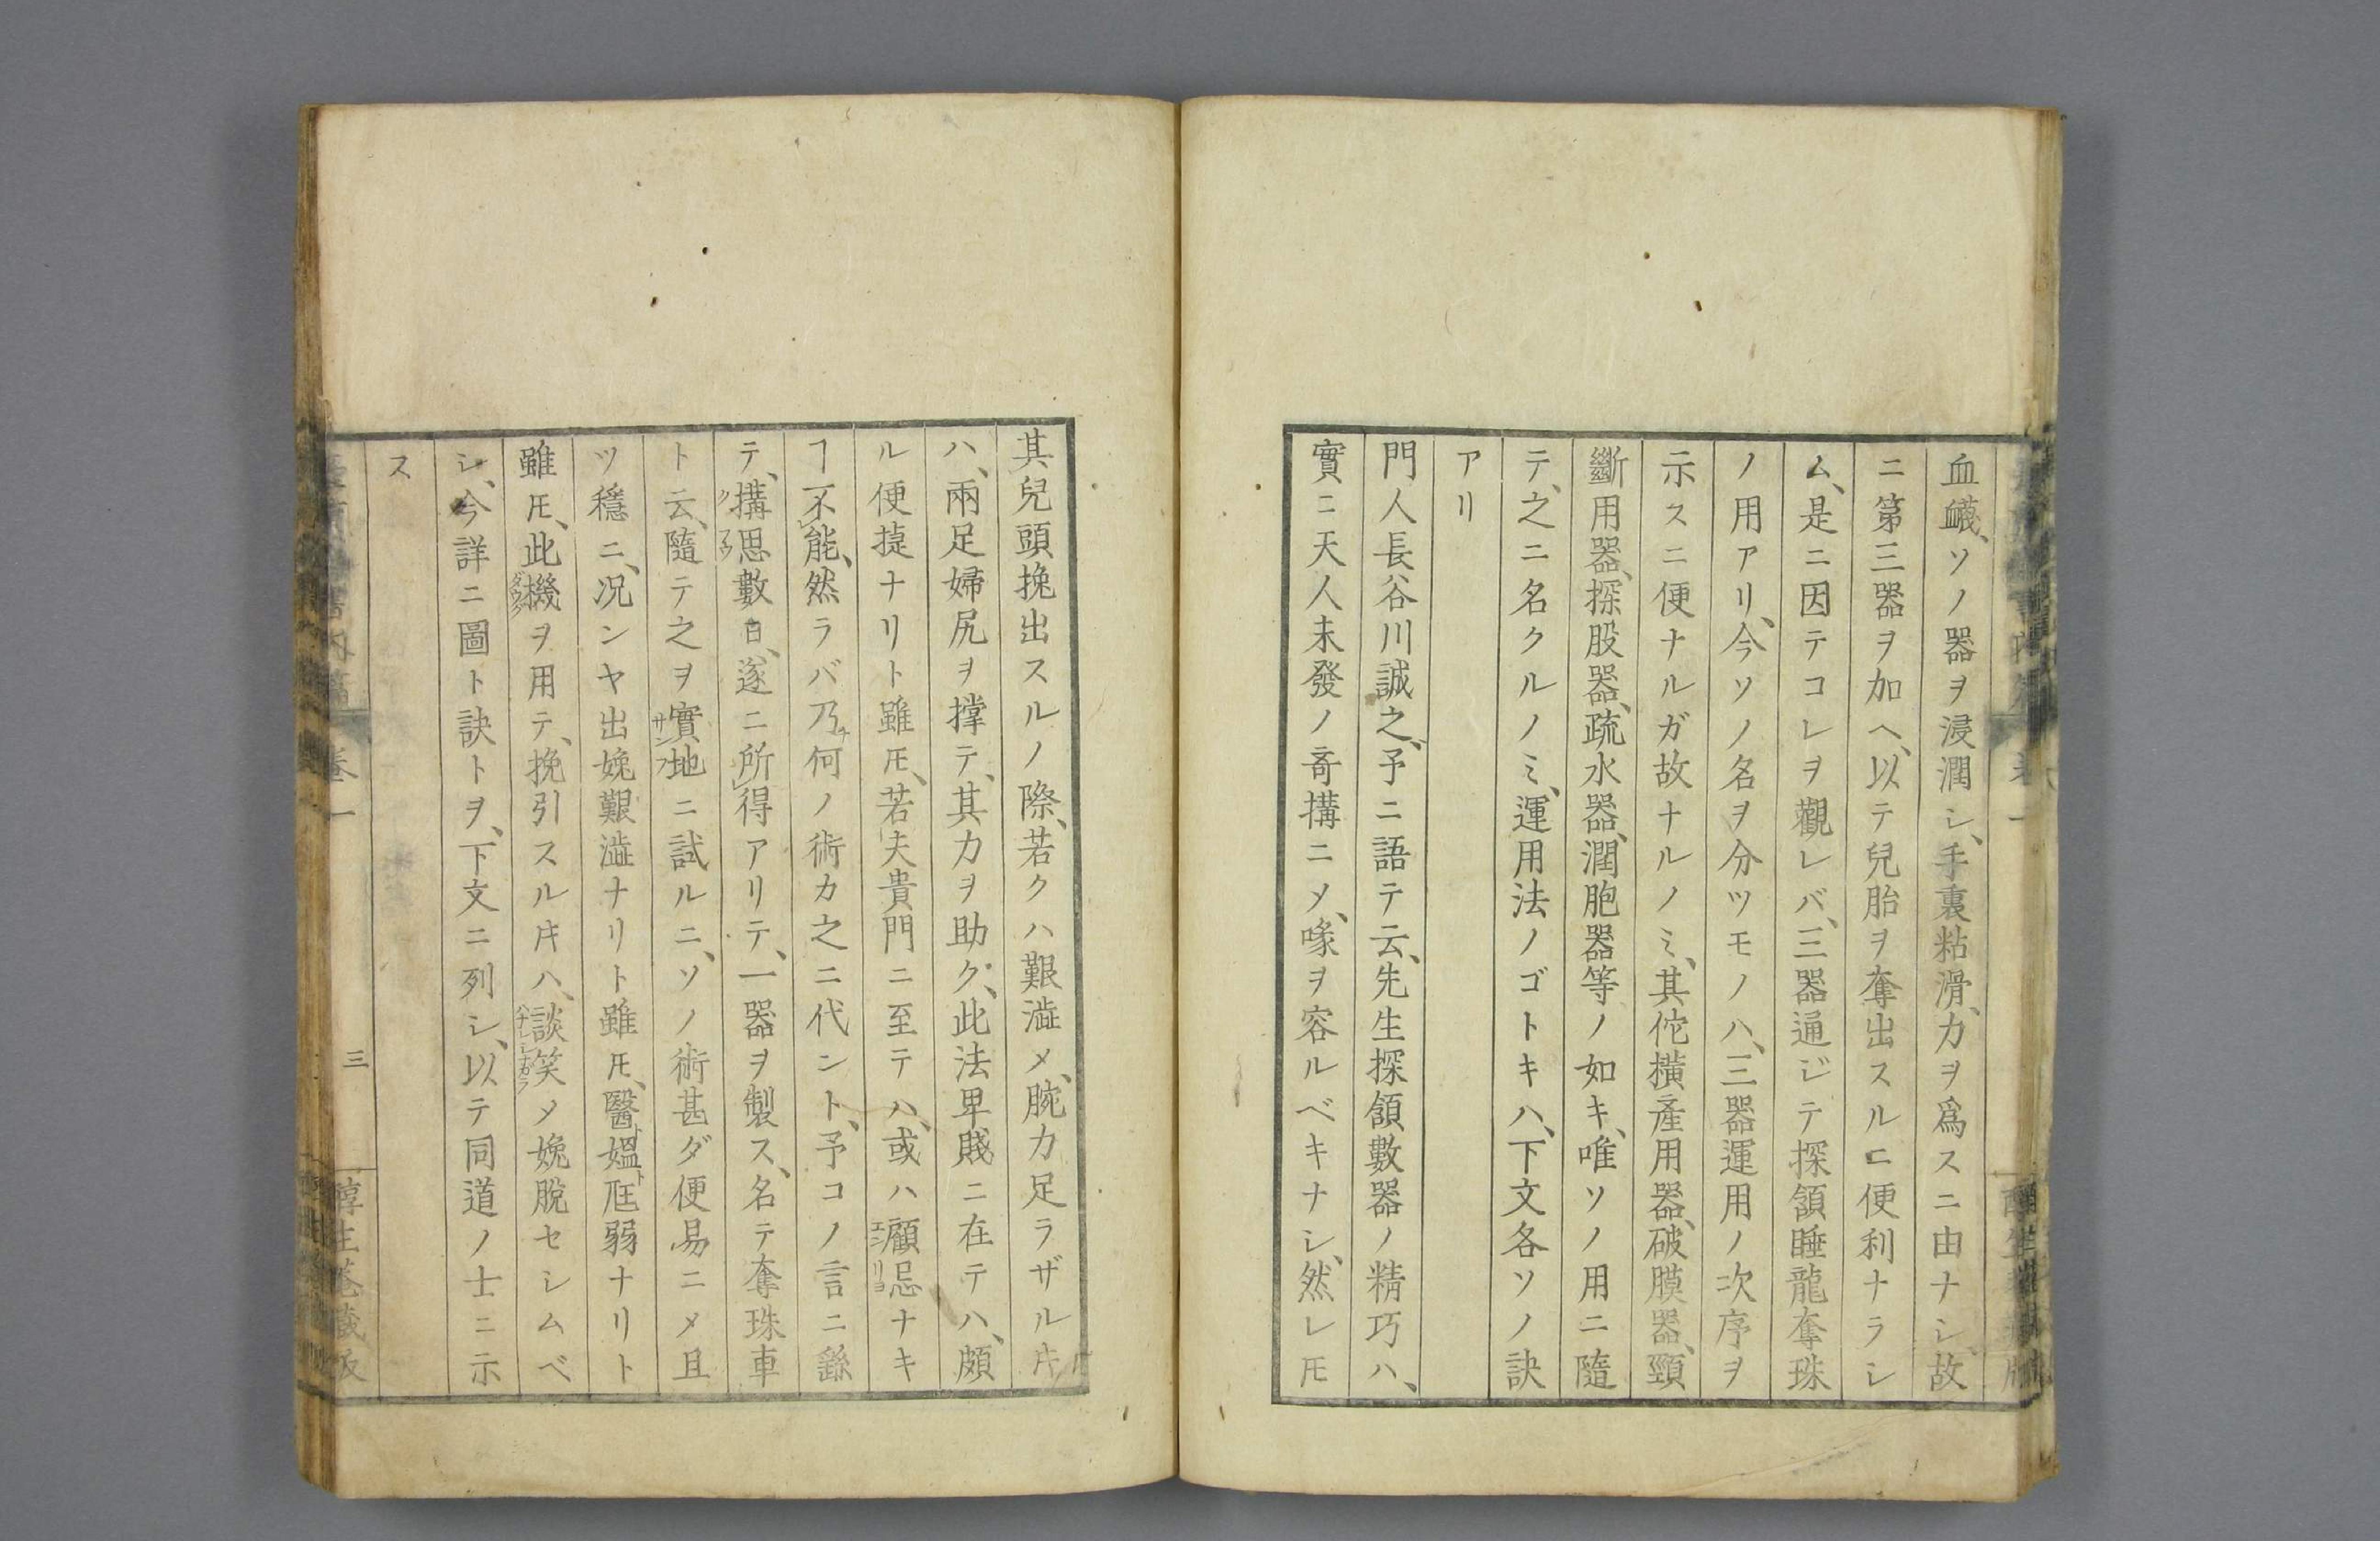 血衊、ソノ器ヲ浸潤シ、手裏粘滑、力ヲ爲スニ由ナシ、故
ニ第三器ヲ加ヘ、以テ兒胎ヲ奪出スルニ便利ナラシ
ム、是ニ因テコレヲ觀レバ、三器通ジテ探頷睡龍奪珠
ノ用アリ、今ソノ名ヲ分ツモノハ、三器運用ノ次序ヲ
示スニ便ナルガ故ナルノミ、其佗橫產用器、破膜器、頸
斷用器、探股器、疏水器、潤胞器等ノ如キ、唯ソノ用ニ隨
テ、之ニ名クルノミ、運用法ノゴトキハ、下文各ソノ訣
アリ
門人長谷川誠之、予ニ語テ云、先生探頷數器ノ精巧ハ、
實ニ天人未發ノ奇搆ニメ、喙ヲ容ルベキナシ、然レ𪜈
其兒頭挽出スルノ際、若クハ艱澁メ、腕力足ラザル片
ハ、兩足婦尻ヲ撐テ、其力ヲ助ク、此法卑賤ニ在テハ、頗
ル便捷ナリト雖𪜈、若夫貴門ニ至テハ、或ハ顧忌ナキ
ヿ不レ能、然ラバ乃チ何ノ術カ之ニ代ント、予コノ言ニ繇
テ、搆思數日、遂ニ所レ得アリテ、一器ヲ製ス、名テ奪珠車
ト云、隨テ之ヲ實地ニ試ルニ、ソノ術甚ダ便易ニメ且
ツ穩ニ、況ンヤ出娩艱澁ナリト雖𪜈、醫ト媼ト尫弱ナリト
雖𪜈、此機ヲ用テ、挽引スル片ハ、談笑メ娩脫セシムベ
シ、今詳ニ圖ト訣トヲ、下文ニ列シ、以テ同道ノ士ニ示
ス
卷一
三